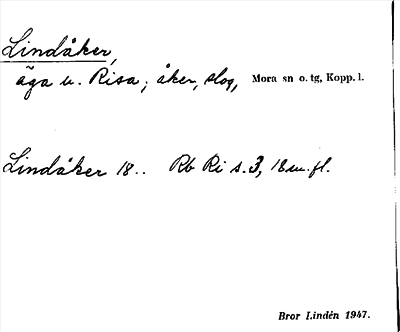 Lindåker,
äga u. Risa; åker, slog, Mora sn o. tg, Kopp. l.
Lindåker 18.. Rb Ri s. 3, 18 m. fl.
Bror Lindén 1947.